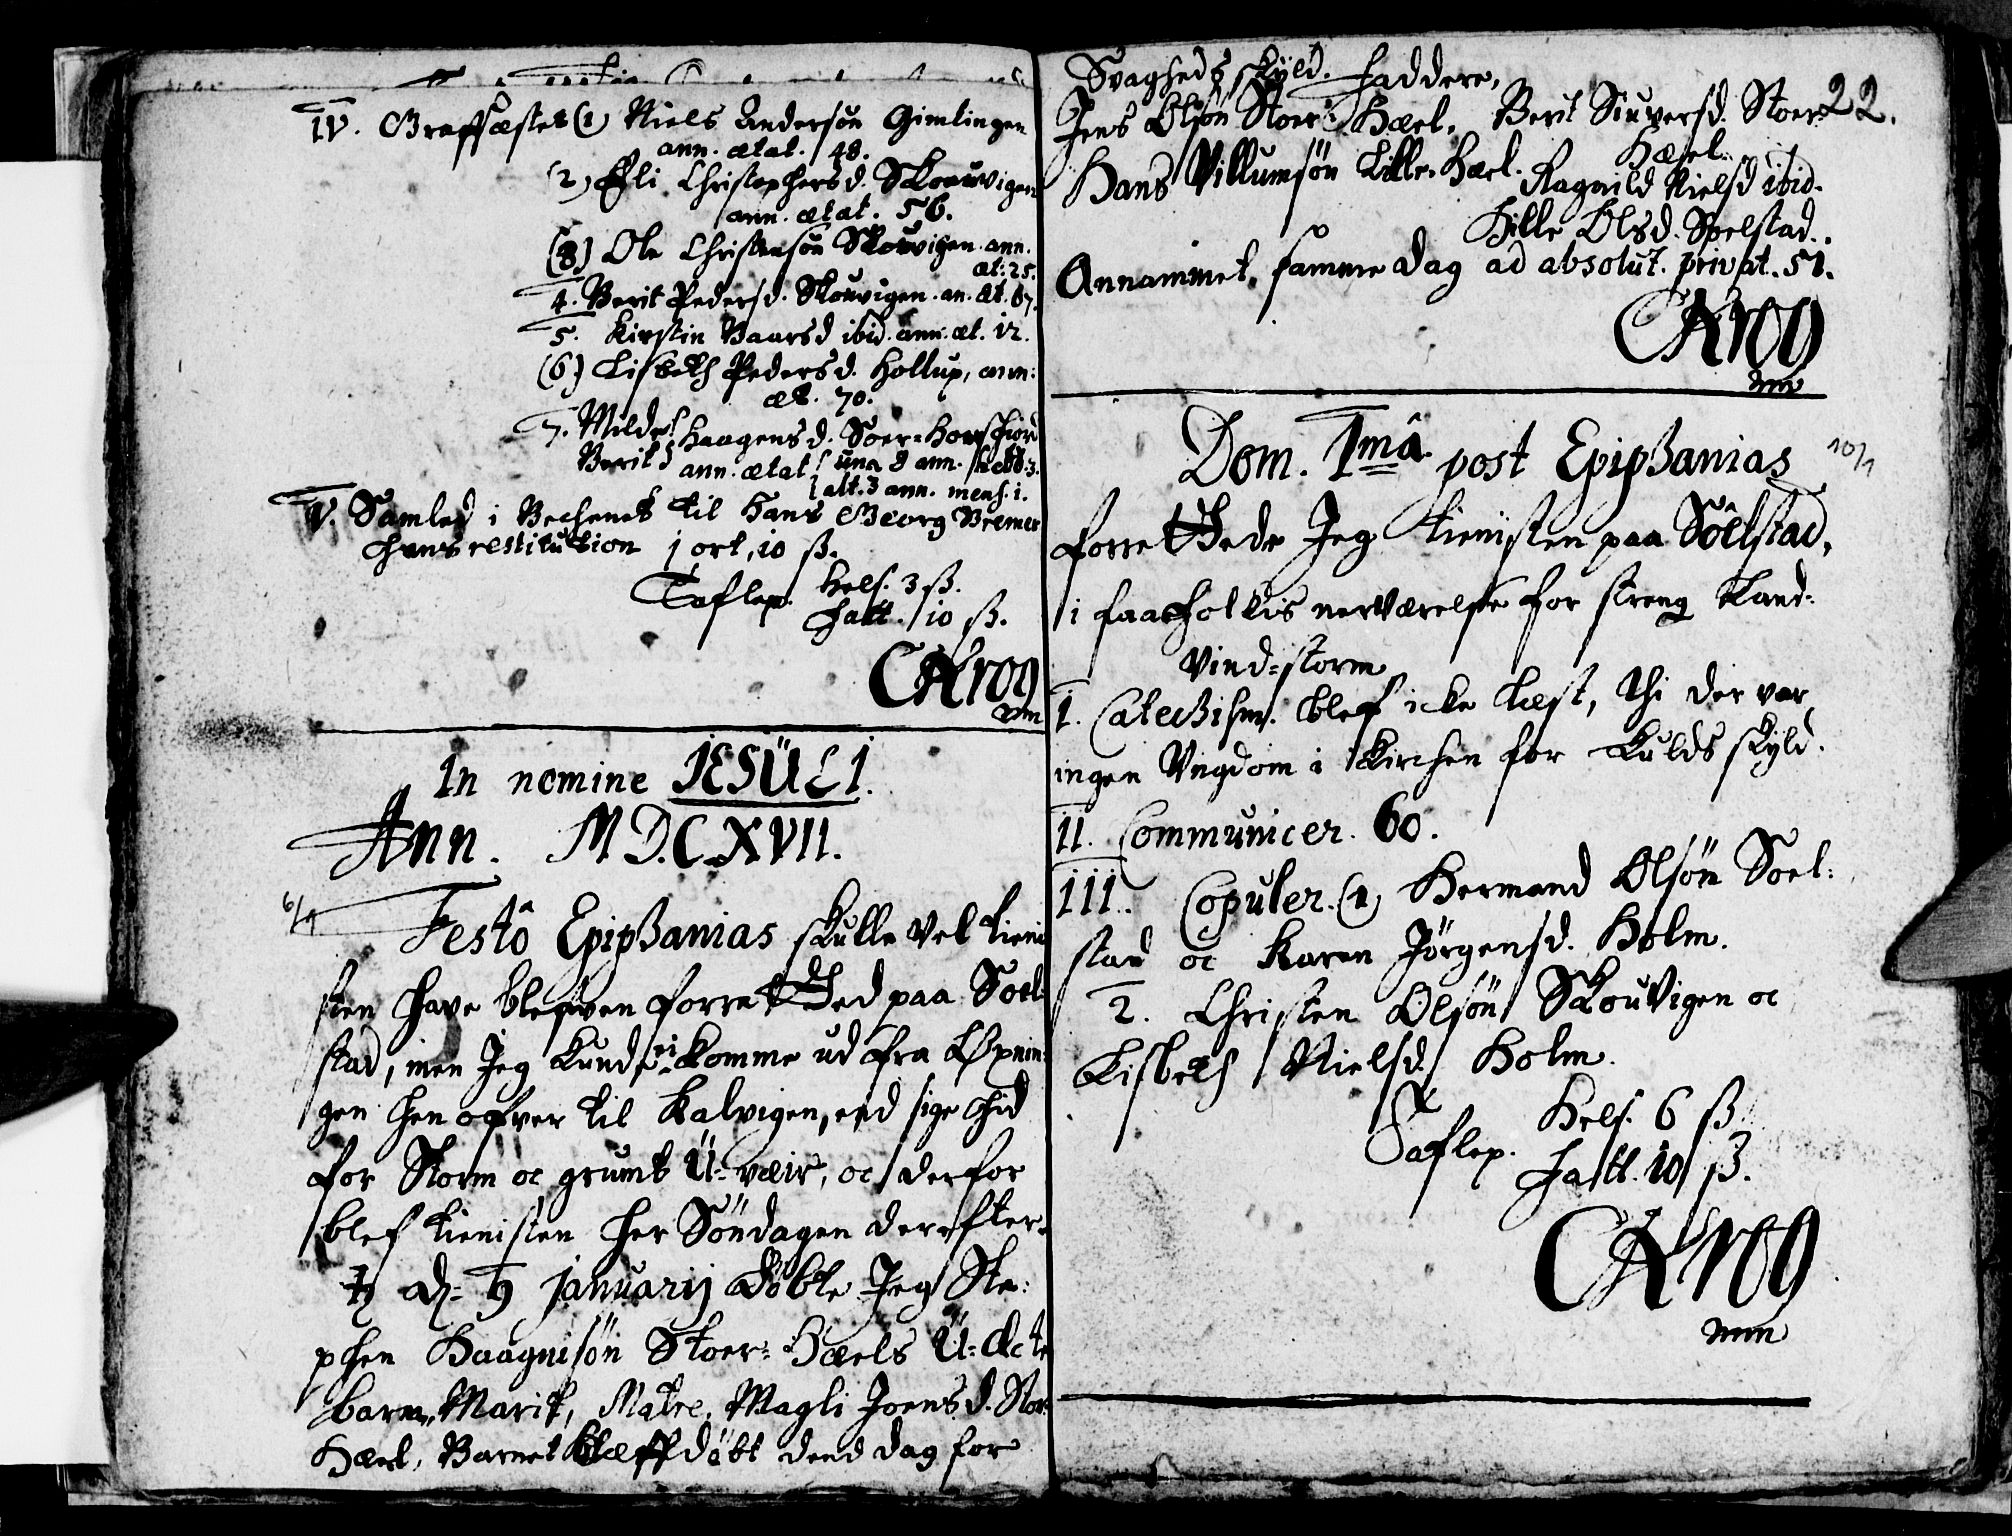 IV. Graffæstet (1) Niels Andersøn Gimlingen
ann. ætat. 48.
(2) Eli Christophersd. Skouvigen
ann. ætat. 56.
(3) Ole Christensøn Skouvigen. ann.
æt: 25.
4. Berit Pedersd. Skouvigen. an. æt. 67.
5. Kirstin Baarsd ibid. ann. æt. 12.
(6) Lisbeth Pedersd. Hollup, ann:
æt. 70.
7. Mildri Haagensd. Soer=
Berit ann. ætat una 8 ann. hebd. 3.
alt. 3 ann. mens. i.
V. Samled i Bechenet til Hans Georg Bremer
hans restitution j ort, 10 ß.
Taflep. Hels. 3 ß.
Fatt. 10 ß.
CKrog
mm
In nomine JESULI.
Ann. MDCXVII.
6/1
Festô Epiphanias skulle vel tieni
sten have blefven forretted paa Soel
stad, men Jeg kunde ei komme ud fra Øxnin
gen hen ofver til Kalvigen, end sige hid
for Storm oc grumt Ü=væir, oc derfor
blef tienisten her Söndagen derefter.
d. 9 januarij döbte Jeg Ste:
phen Haagnisön Stoer=Hæels Ü=Ecte
barn, Marit, Matre, Magli Joensd. Stor
Hæel, Barnet blæff döbt dend dag for
Svagheds skyld. Faddere,
22.
Jens Olsön Stoer Hæel. Berit Siuversd. Stoer
Hæel.
Hans Villumsön Lille-Hæel. Ragnild Nielsd ibid.
Hille Olsd. Spelstad.
Annammet. samme dag ad absolut. privat. 51.
CKrog
mm
Dom. 1mâ post Epiphanias
10/1
forrettede Jeg tienisten paa Söelstad,
i faa folkis nerværelse for streng Land=
Vind=storm
I. Catechism. blef icke læst, thi der var
ingen Vngdom i Kirchen for Kulds skyld.
II. Communicer. 60.
III. Copuler. (1) Hermand Olsön Soel:
stad oc Karen Jörgensd. Holm.
2. Christen Olsön SkouVigen oc
Lisbeth Nielsd Holm.
Hels. 6 ß
Taflep.
Fatt. 10 ß.
CKrog
mm